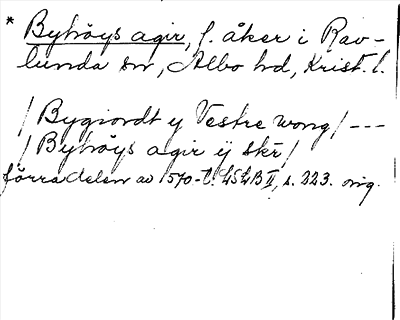 * Byhöys agir, f. åker i Rav-
lunda sn, Albo hd, Krist. l.
/ Bygiordt y Vestre wong / ---
/ Byhöys agir ij skr /
förra delen av 1570-t. LSLB II, s. 223. orig.